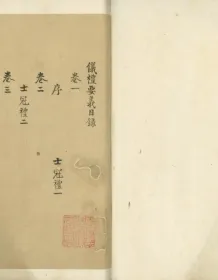 儀禮要義目錄
卷一
序
士冠禮一
卷二
士冠禮二
卷三